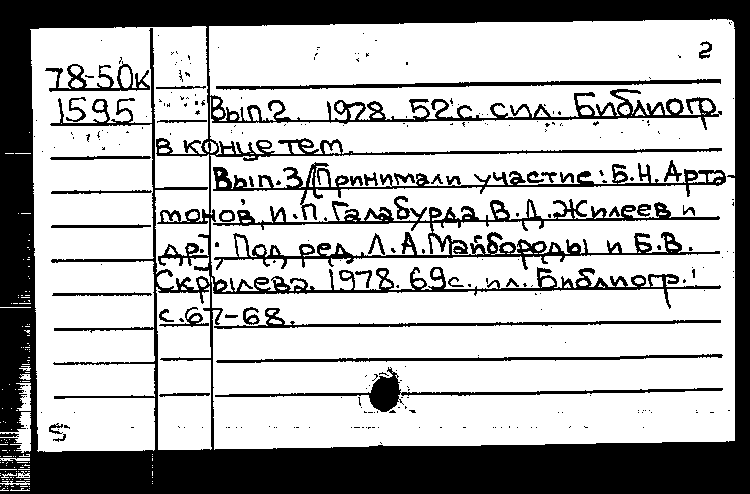 2
78-50к
1595 Вып.2. 1978. 52 с. с ил. Библиогр.
в конце тем.
Вып.3/[Принимали участие: Б.Н.Арта-
монов, И.П.Галабурда, В.Д.Жилеев и
др.]; Под ред. Л.А.Майбороды и Б.В.
Скрылева. 1978. 69с., ил. Библиогр.:
с.67-68.
5